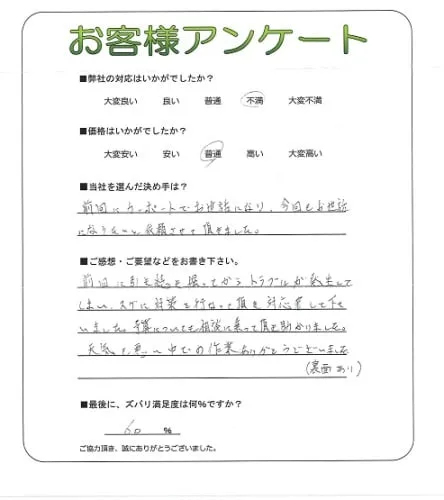 お客様アンケート
■弊社の対応はいかがでしたか？
大変良い 良い 普通 不満 大変不満
■価格はいかがでしたか？
大変安い 安い 普通 高い 大変高い
■当社を選んだ決め手は？
前回にカーポートでお世話になり、今回もお世話
になりたいと依頼させて頂きました。
■ご感想・ご要望などをお書き下さい。
前回に引き続き
トラブルが発生して
しまい、スグに対策を行なって頂き対応をして下さ
いました。予算についても相談に乗って頂き助かりました。
天気の悪い中での作業ありがとうございました
(裏面あり)
■最後に、ズバリ満足度は何％ですか？
60 %
ご協力頂き、誠にありがとうございました。